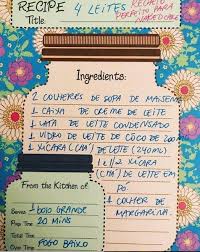 RECIPE
Title: 4 LEITES
RECHEIO
PERFEITO PARA
NAKEDCAKE
Ingredients:
2 COLHERES DE SOPA DE MAISENA
1 CAIXA DE CREME DE LEITE
1 LATA DE LEITE CONDENSADO
1 VIDRO DE LEITE DE COCO DE 200
1 XÍCARA (CHÁ) DE LEITE (240ML)
1 E 1/2 XÍCARA
(CHÁ) DE LEITE EM
PÓ
1 COLHER DE
MARGARINA
From the Kitchen of:
Serves 1 BOLO GRANDE
Prep Time 20 MINS
Total Time
Oven Temp FOGO BAIXO